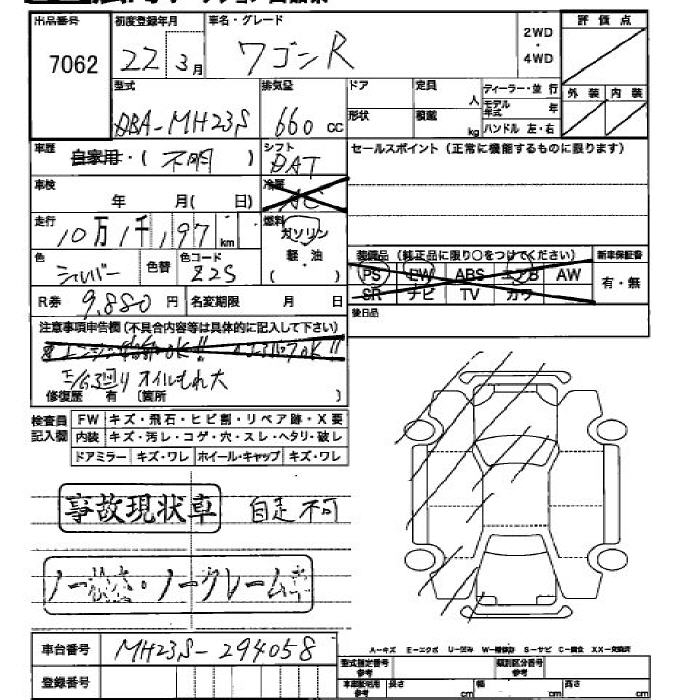 出品番号 初度登録年月 車名・グレード 2WD・4WD 評価点
7062 22 3月 ワゴンR
外装 内装
型式 排気量 ドア 定員 人 ディーラー・並行
DBA-MH23S 660cc 形状 積載 kg モデル年式 年
ハンドル 左・右
車歴 自家用・(不明) シフト DAT セールスポイント(正常に機能するものに限ります)
車検 年 月(日) 冷房 AC
走行 10万1千197km 燃料 ガソリン
軽・油
( )
色 シルバー 色替 色コード Z2S
装備品(純正品に限り○をつけてください) 新車保証書
PS PW ABS エアB AW 有・無
SR ナビ TV カワ
R券 9,880円 名変期限 月 日 後日品
注意事項申告欄(不具合内容等は具体的に記入して下さい)
オイルもれ大
修復歴 有 〔箇所 〕
検査員記入欄 FW キズ・飛石・ヒビ割・リペア跡・X要
内装 キズ・汚レ・コゲ・穴・スレ・ヘタリ・破レ
ドアミラー キズ・ワレ ホイール・キャップ キズ・ワレ
事故現状車 自走不可
ノークレーム
車台番号 MH23S-294058
A-キズ E-エクボ U-凹み S-サビ C-腐食
登録番号 型式指定番号 参考 類別区分番号 参考
長さ cm 幅 cm 高さ cm